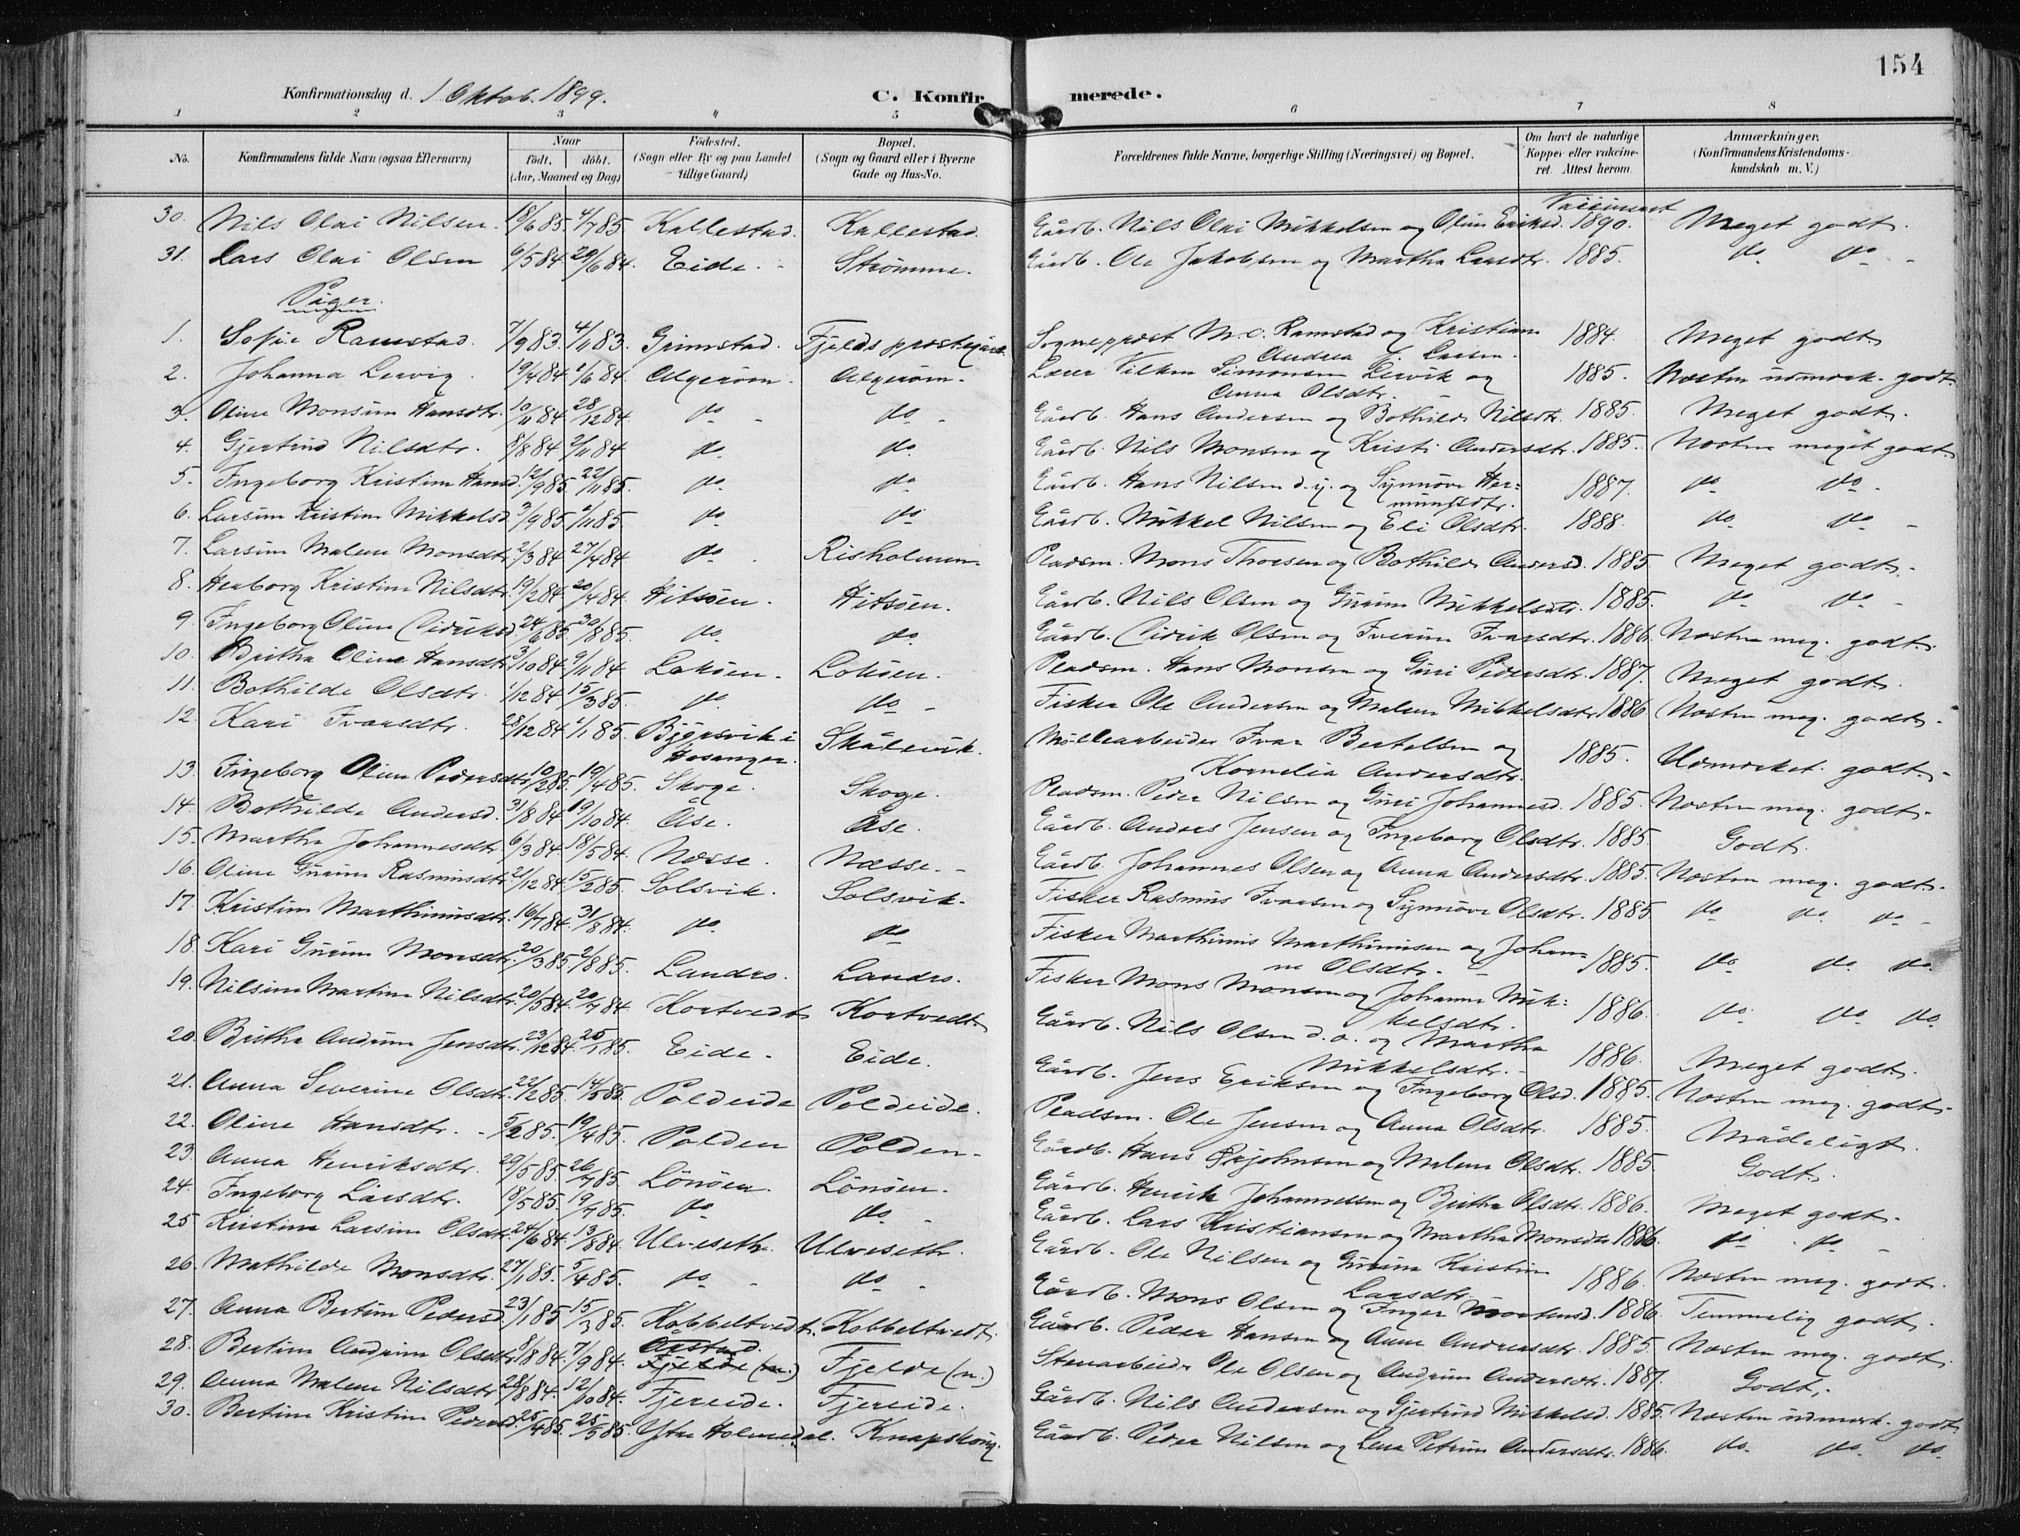 154
Konfirmationsdag d. 1 Oktob. 1899. C. Konfirmerede.
1 2 3 4 5 6 7 8
No. Konfirmandens fulde Navn (ogsaa Efternavn) Naar født. døbt. (Aar, Maaned og Dag) Fødested. (Sogn eller By og paa Landet tillige Gaard) Bopæl. (Sogn og Gaard eller i Byerne Gade og Hus-No. Forældrenes fulde Navne, borgerlige Stilling (Næringsvei) og Bopæl. Om havt de naturlige Kopper eller vakcineret. Attest herom. Anmærkninger. (Konfirmandens Kristendomskundskab m. V.)
30. Nils Olai Nilsen. 18/6 85. 4/7 85 Kallestad. Kallestad. Gårdb. Nils Olai Mikkelsen og Oline Eriksd. Vaccineret 1890. Meget godt.
31. Lars Olai Olsen 6/5 84 29/6 84. Eide. Strømme. Gårdb. Ole Jakobsen og Martha Larsdtr. 1885. do do
Piger.
1. Sofie Ramstad. 7/9 83. 4/11 83. Grimstad. Fjelds prestegård. Sogneprest M. C. Ramstad og Kristiane Andrea E. Larsen. 1884. Meget godt
2. Johanna Lervig. 19/4 84 1/6 84. Algerøen. Algerøen. Lærer Vilken Simonsen Lervik og Anna Olsdtr. 1885. Næsten udmærk. godt.
3. Oline Monsine Hansdtr. 10/11 84. 28/12 84. do do Gårdb. Hans Andersen og Bothilde Nilsdtr. 1885. Meget godt.
4. Gjertrud Nilsdtr. 8/8 84 2/11 84 do do Gårdb. Nils Monsen og Kristi Andersdtr. 1885. Næsten meget godt.
5. Ingeborg Kristine Hansd. 12/9 85. 22/11 85. do do Gårdb. Hans Nilsen d. y. og Synnøve Hermundsdtr. 1887. do do
6. Larsine Kristine Mikkelsd. 3/9 85. 1/11 85 do do Gårdb. Mikkel Nilsen og Eli Olsdtr. 1888. do do
7. Larsine Malene Monsdtr. 2/3 84. 27/4 84. do Risholmen. Pladsm. Mons Thorsen og Bothilde Andersd. 1885 Meget godt.
8. Herborg Kristine Nilsdtr. 19/2 84. 20/4 84. Hitsøen. Hitsøen. Gårdb. Nils Olsen og Gurine Mikkelsdtr. 1885. do do
9. Ingeborg Oline Didriksd. 24/6 85 30/8 85. do do Gårdb. Didrik Olsen og Iverine Ivarsdtr. 1886. Næsten meg. godt.
10. Britha Oline Hansdtr. 3/10 84. 9/11 84 Loksøen. Loksøen. Pladsm. Hans Monsen og Guri Pedersdtr. 1887. Meget godt.
11. Bothilde Olsdtr. 1/12 84. 15/3 85. do do Fisker Ole Andersen og Malene Mikkelsdtr. 1886 Næsten meg. godt.
12. Kari Ivarsdtr. 28/12 84 1/1 85. Bjørsvik i Hosanger. Skålevik. Møllearbeider Ivar Bertelsen og Kornelia Andersdtr. 1885. Udmærket godt.
13. Ingeborg Oline Pedersdtr. 10/2 85. 19/4 85. Skoge. Skoge. Pladsm. Peder Nilsen og Guri Johannesd. 1885. Næsten meg. godt.
14. Bothilde Andersd. 31/8 84 19/10 84. Åse. Åse. Gårdb. Anders Jensen og Ingeborg Olsdtr. 1885. Godt.
15. Martha Johannesdtr. 6/3 84. 18/5 84. Næsse. Næsse. Gårdb. Johannes Olsen og Anna Andersdtr. 1885. Næsten meg. godt.
16. Oline Gurine Rasmusdtr. 21/12 84. 15/2 85. Solsvik. Solsvik. Fisker Rasmus Ivarsen og Synnøve Olsdtr. 1885 do do do
17. Kristine Marthinusdtr. 16/7 84. 31/8 84. do do Fisker Marthinus Marthinusen og Johanne Olsdtr. 1885. do do do
18. Kari Gurine Monsdtr. 20/3 85. 2/8 85. Landro. Landro. Fisker Mons Monsen og Johanne Mikkelsdtr. 1886. do do do
19. Nilsine Martine Nilsdtr. 20/5 84. 20/7 84. Kortvedt Kortvedt Gårdb. Nils Olsen d. æ. og Martha Mikkelsdtr. 1886. Meget godt.
20. Britha Andrine Jensdtr. 23/12 84. 25/1 85. Eide. Eide. Gårdb. Jens Eriksen og Ingeborg Olsd. 1885. Næsten meg. godt.
21. Anna Severine Olsdtr. 22/2 85. 14/5 85. Poldeide Poldeide. Pladsm. Ole Jensen og Anna Olsdtr. 1885. Mådeligt.
22. Oline Hansdtr. 5/2 85. 19/4 85. Polden Polden. Gårdb. Hans Ørjohnsen og Malene Olsdtr. 1885. Godt.
23. Anna Henriksdtr. 29/5 85. 26/7 85. Lønøen. Lønøen. Gårdb. Henrik Johannessen og Britha Olsdtr. 1886. Meget godt.
24. Ingeborg Larsdtr. 8/5 85. 19/7 85. do do Gårdb. Lars Kristiansen og Martha Monsdtr. 1886. do do
25. Kristine Larsine Olsdtr. 24/6 84. 13/8 84. Ulveseth. Ulveseth. Gårdb. Ole Nilsen og Gurine Kristine Larsdtr. 1886. Næsten meg. godt.
26. Mathilde Monsdtr. 27/1 85. 5/4 85. do do Gårdb. Mons Olsen og Inger Mortensd. 1886. Temmelig godt.
27. Anna Bertine Pedersd. 23/1 85 15/3 85. Kobbeltvedt. Kobbeltvedt. Gårdb. Peder Hansen og Anne Andersdtr. 1885. Næsten meg. godt.
28. Bertine Andrine Olsdtr. 8/8 84. 7/9 84. Årstad. Fjelde (n.) Fjelde (n.) Stenarbeider Ole Olsen og Andrine Andersdtr. 1887. Godt.
29. Anna Malene Nilsdtr. 28/8 84. 12/10 84. Fjereide. Fjereide. Gårdb. Nils Andersen og Gjertrud Mikkelsd. 1885. Næsten udmærk. godt
30. Bertine Kristine Pedersd. 25/4 85. 25/5 85. Ytre Holmedal. Knapskog. Gårdb. Peder Nilsen og Lena Petrine Andersdtr. 1886. do do do